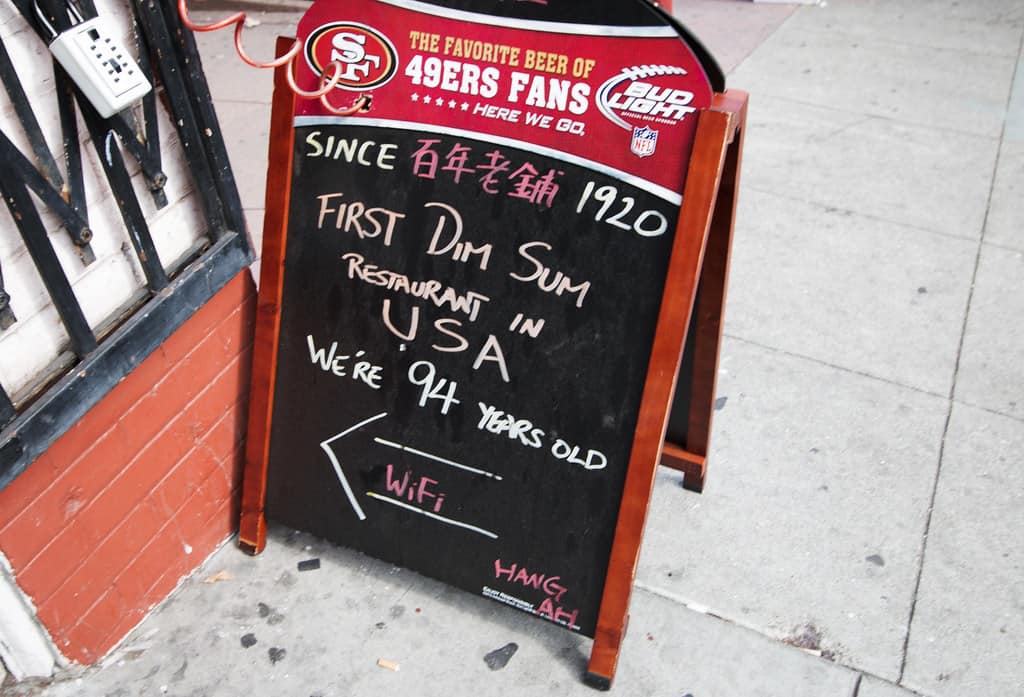 SF
THE FAVORITE BEER OF
49ERS FANS
HERE WE GO.
BUD
LIGHT
NFL
SINCE 百年老舖 1920
FIRST DIM SUM
RESTAURANT IN
USA
WE'RE 94 YEARS OLD
WiFi
HANG
AH
ENJOY RESPONSIBLY